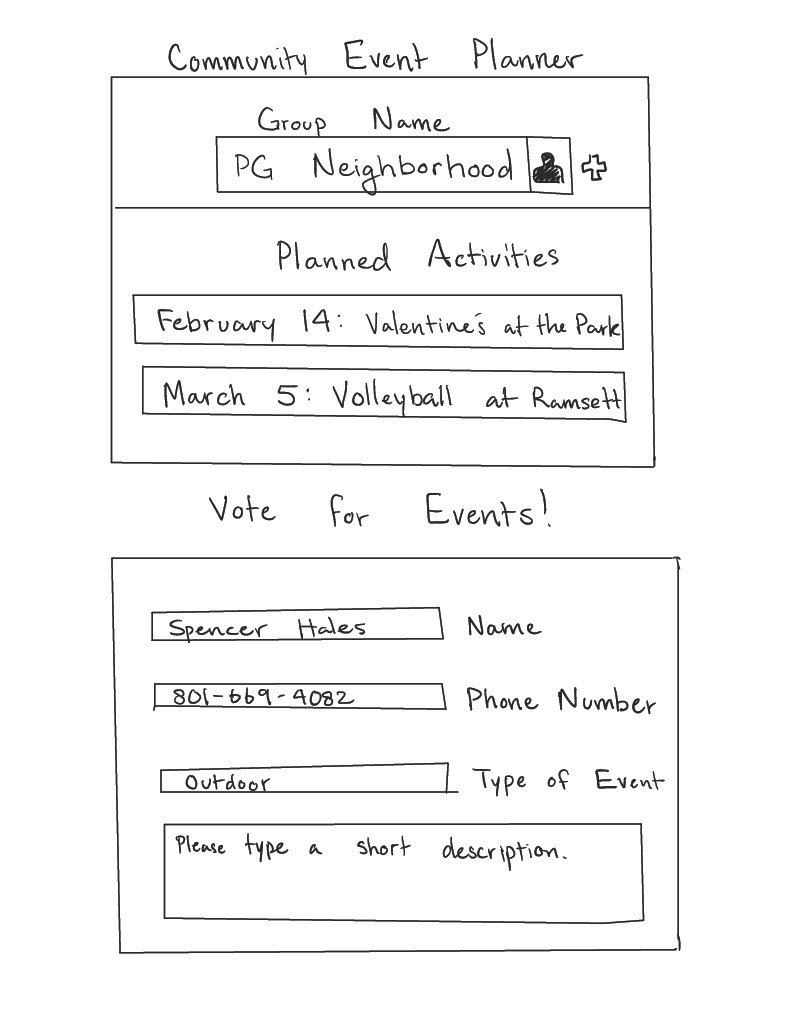 Community Event Planner
Group Name
PG Neighborhood
Planned Activities
February 14: Valentine's at the Park
March 5: Volleyball at Ramsett
Vote for Events!
Spencer Hales Name
801-669-4082 Phone Number
Outdoor Type of Event
Please type a short description.